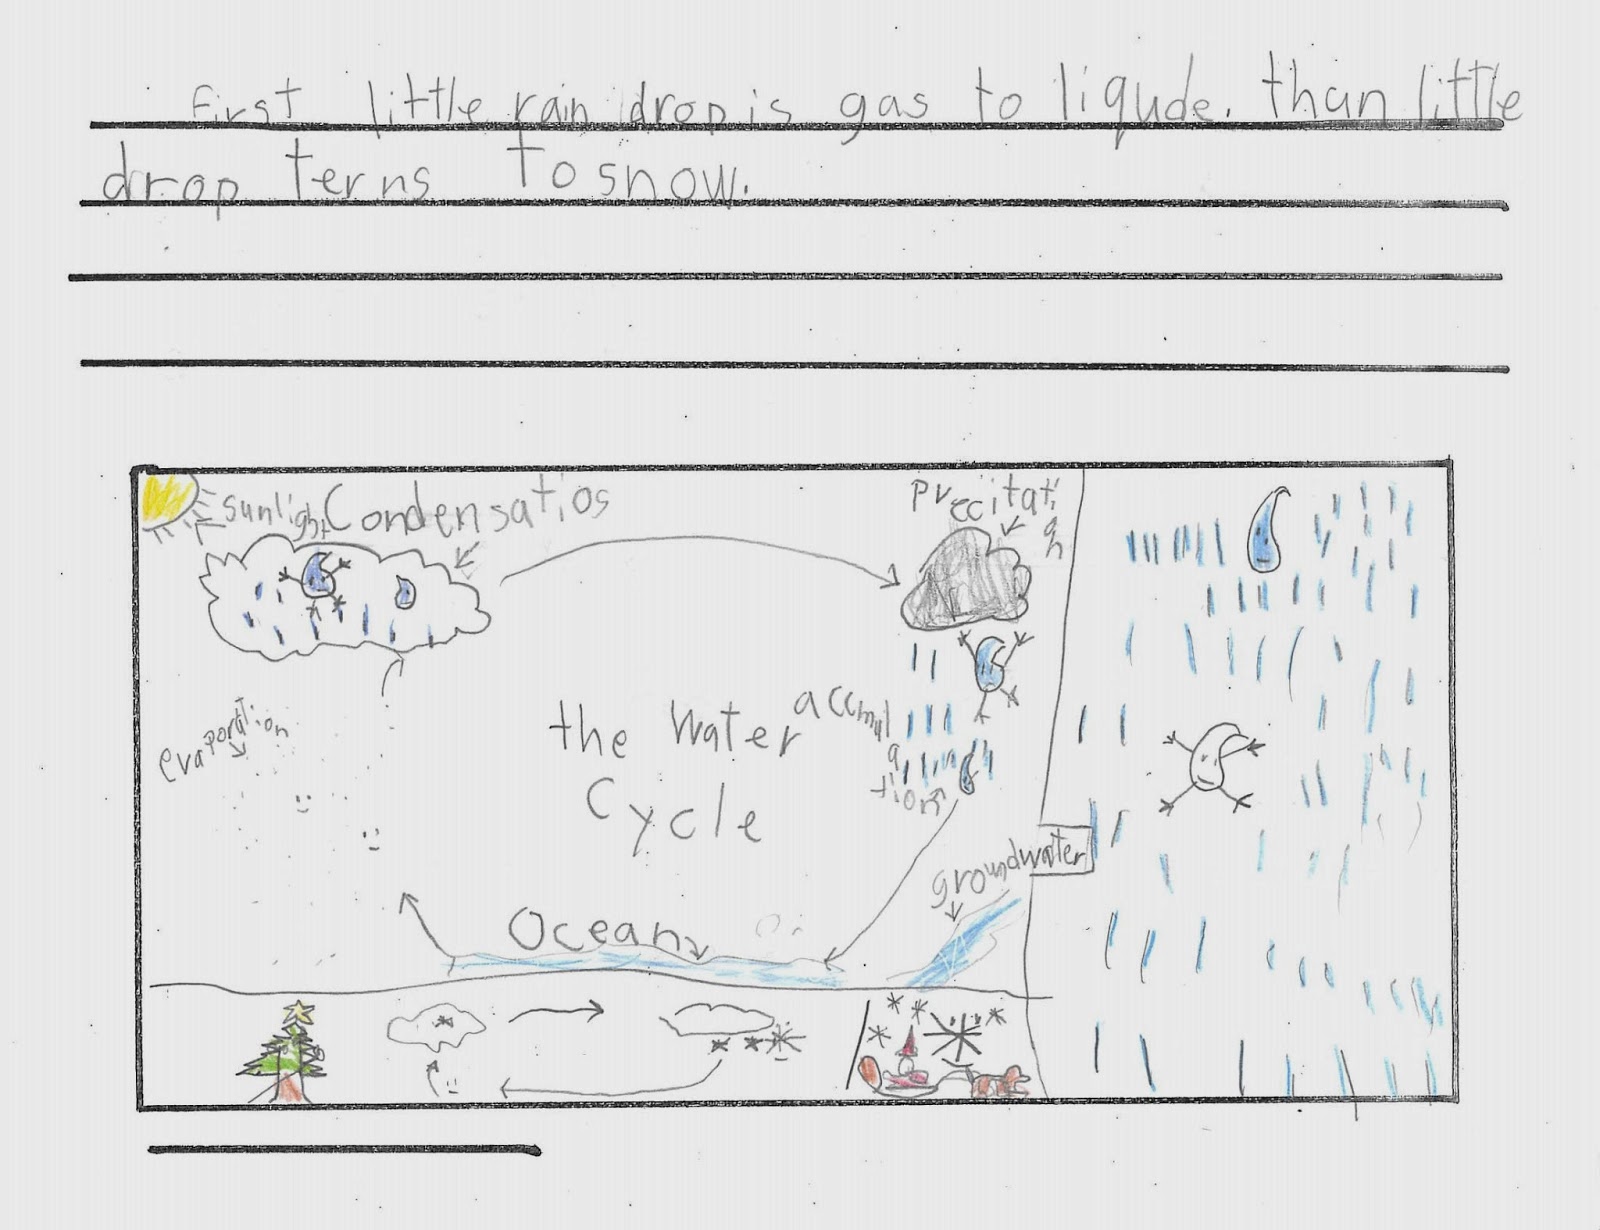 First little rain drop is gas to liqude. than little
drop terns to snow.
sunlight
Condensatios
Precitation
evaporation
the Water
Cycle
accmulation
groundwater
Ocean